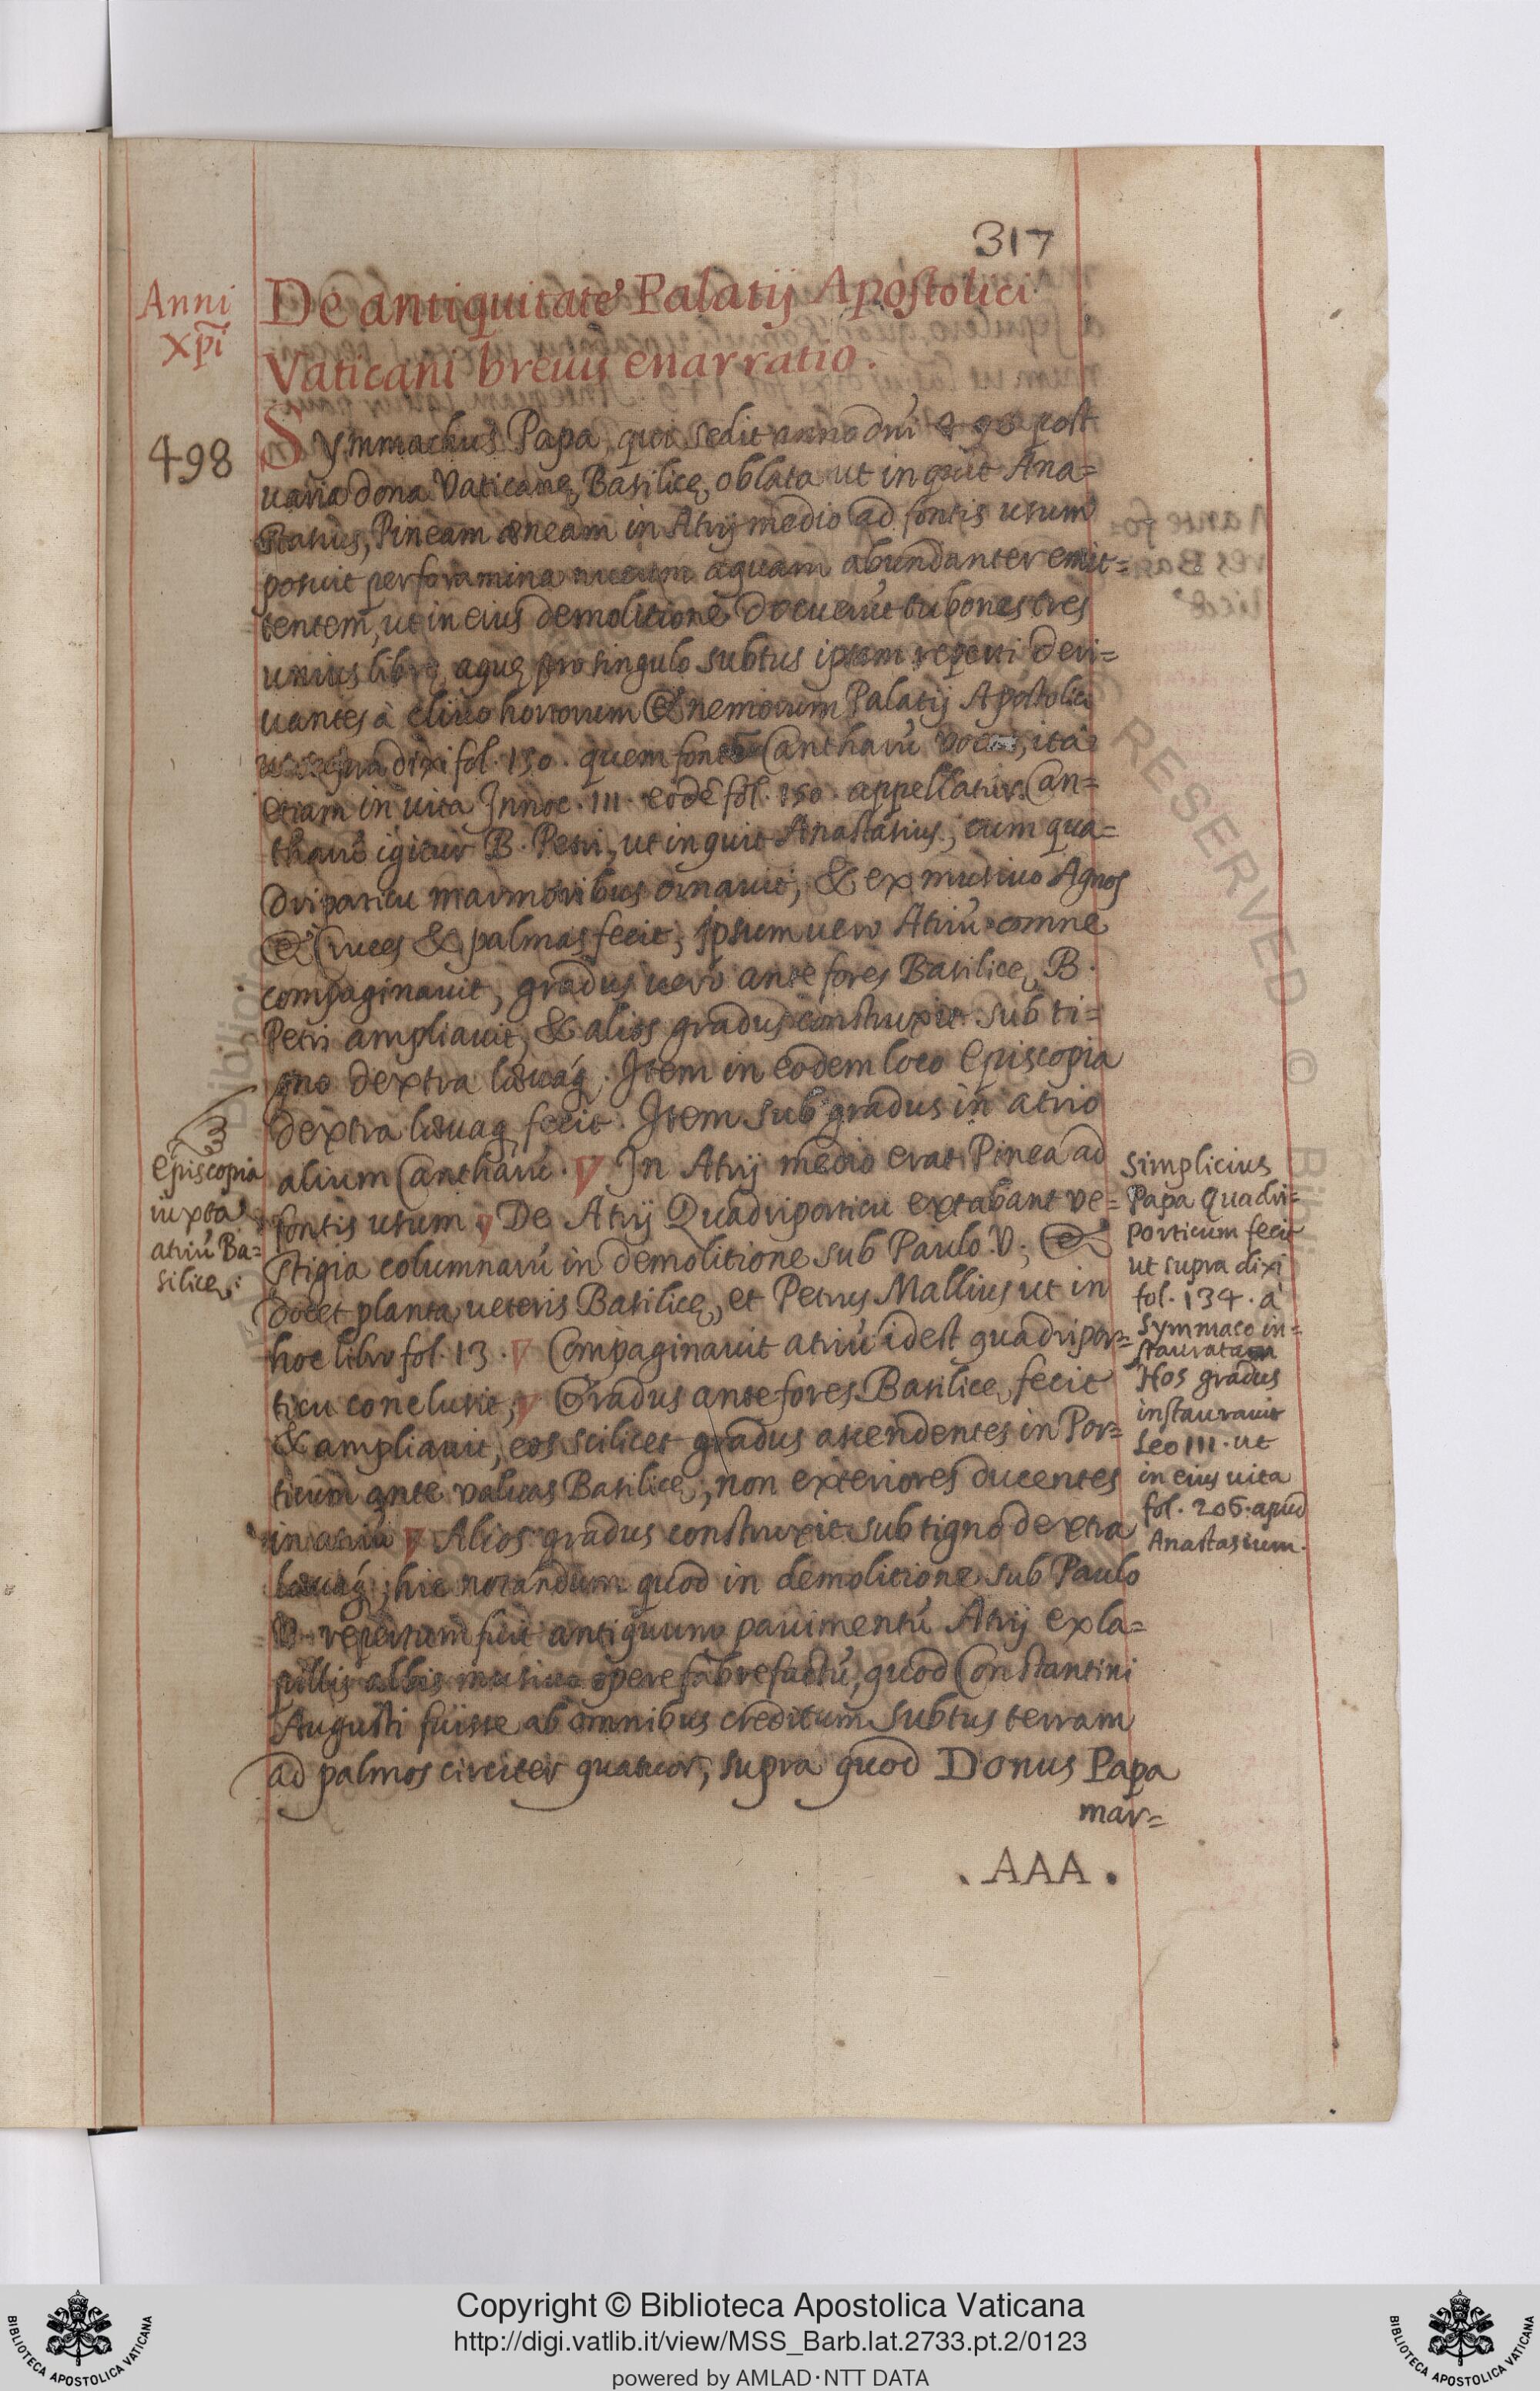 317
Anni
Xp̄i
De antiquitate Palatij Apostolici
Vaticani breuis enarratio.
498
Symmachus Papa, qui sedit anno dnī 498 post
uaria dona Vaticanę Basilicę oblata ut inquit Ana=
stasius, Pineam æneam in Atrij medio ad fontis usum
posuit per foramina nucum aquam abundanter emit=
tentem, ut in eius demolitione docuerūt tubones tres
unius librę aquę pro singulo subtus ipsam reperti deri=
uantes à cliuo hortorum & nemorum Palatij Apostolici
ut supra dixi fol. 150. quem fontē Cantharū vocat, ita
etiam in uita Innoc. III. eodē fol. 150. appellatur. Can=
tharū igitur B. Petri, ut inquit Anastasius, cum qua=
driporticu marmoribus ornauit, & ex musiuo Agnos
& Cruces & palmas fecit, ipsum uero Atriū omne
compaginauit, gradus uerò ante fores Basilicę B.
Petri ampliauit, & alios gradus construxit sub ti=
gno dextra læuáq. Item in eodem loco Episcopia
dextra læuaq fecit. Item sub gradus in atrio
alium Cantharū. In Atrij medio erat Pinea ad
fontis usum. De Atrij Quadriporticu extabant ve=
stigia columnarū in demolitione sub Paulo V, &
docet planta ueteris Basilicę, et Petrus Mallius ut in
hoc libro fol. 13. Compaginauit atriū idest quadripor=
ticu conclusit, Gradus ante fores Basilicę fecit
& ampliauit, eos scilicet gradus ascendentes in Por=
ticum ante valuas Basilicę, non exteriores ducentes
in atriū Alios gradus construxit sub tigno dextra
læuáq, hic notandum quod in demolitione sub Paulo
V. repertum fuit antiquum pauimentū Atrij ex la=
pillis albis musiuo opere fabrefactū, quod Constantini
Augusti fuisse ab omnibus creditum subtus terram
ad palmos circiter quatuor, supra quod Donus Papa
mar=
.AAA.
Episcopia
iuxta
atriū Ba=
silicę:
Simplicius
Papa Quadri=
porticum fecit
ut supra dixi
fol. 134. à
Symmaco in=
stauratam
Hos gradus
instaurauit
Leo III. ut
in eius uita
fol. 206. apud
Anastasium.
Copyright © Biblioteca Apostolica Vaticana
http://digi.vatlib.it/view/MSS_Barb.lat.2733.pt.2/0123
powered by AMLAD·NTT DATA
BIBLIOTECA APOSTOLICA VATICANA
BIBLIOTECA APOSTOLICA VATICANA